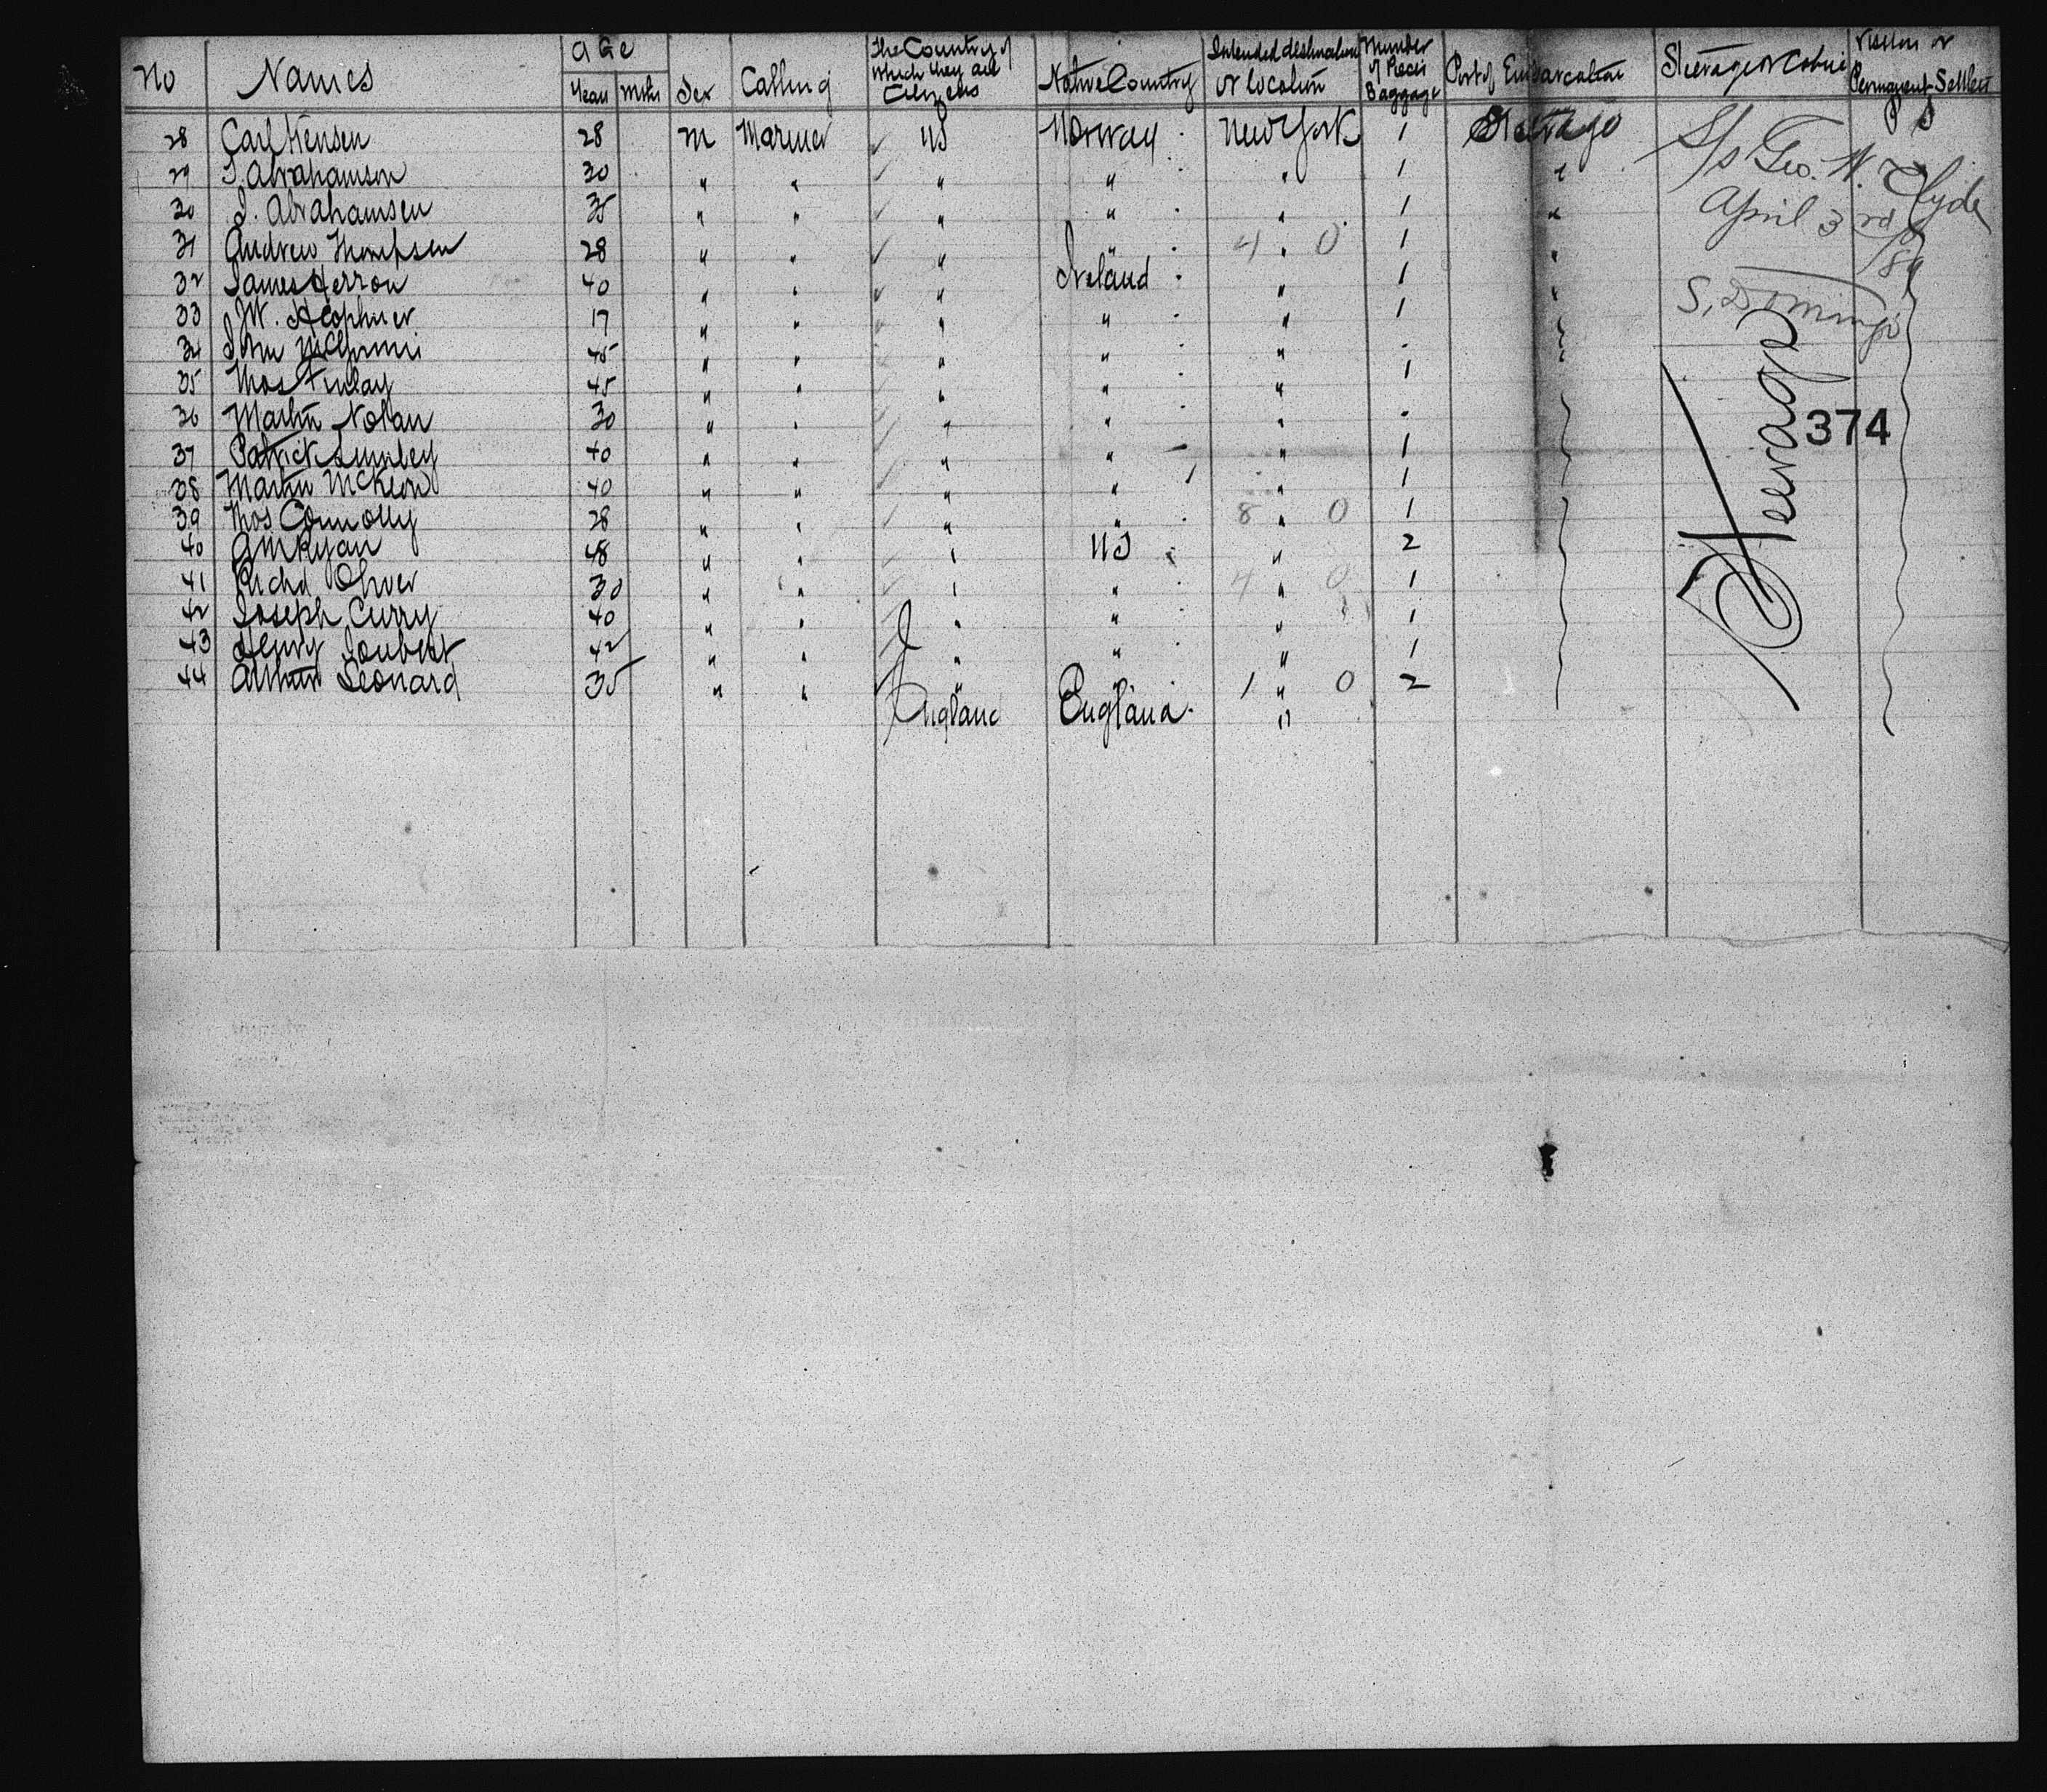 No Names Age Sex Calling The Country of which they are Citizens Native Country Intended destination or location Number of Pieces Baggage Port of Embarcation Steerage or Cabin Visitors or Permanent Settlers
Years Mths
28 Carl Hensen 28 M Mariner US Norway New York 1 Steerage P S
S/s Geo. W. Clyde
29 Abrahamson 30 " " " " " 1 "
April 3rd /89
30 J. Abrahamsen 35 " " " " " 1 "
31 Andrew Thompsen 28 " " " " 4 " 0 1 "
32 James Herron 40 " " " Ireland " 1 "
S. Domingo
33 17 " " " " " 1
34 John 45 " " " " "
35 Thos Finlay 45 " " " " " 1
36 Martin Nolan 30 " " " " "
Steerage
374
37 Patrick 40 " " " " " 1
38 Martin McKeon 40 " " " " " 1
39 Thos Connolly 28 " " " " 8 " 0 1
40 Ryan 48 " " " US " 2
41 Richd Oliver 30 " " " " 4 " 0 1
42 Joseph Curry 40 " " " " " 1
43 Henry Joubert 42 " " " " " 1
44 Arthur Leonard 35 " " " " 1 " 0 2
England England "